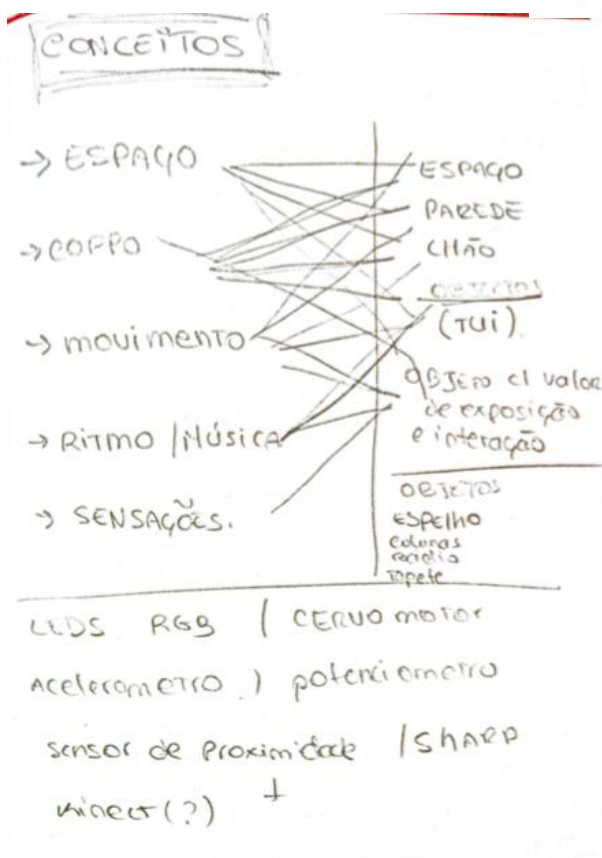 CONCEITOS
-> ESPAÇO
-> COPPO
-> movimento
-> RITMO / MÚSICA
-> SENSAÇÕES.
ESPAÇO
PAREDE
CHÃO
OBJECTOS
(TUI).
OBJETO c/ valor
de exposição
e interação
OBJETOS
ESPELHO
Colunas
rádio
Tapete
LEDS RGB / CERVO motor
Acelerometro / potenciometro
sensor de Proximidade / SHARP
Kinect (?) +